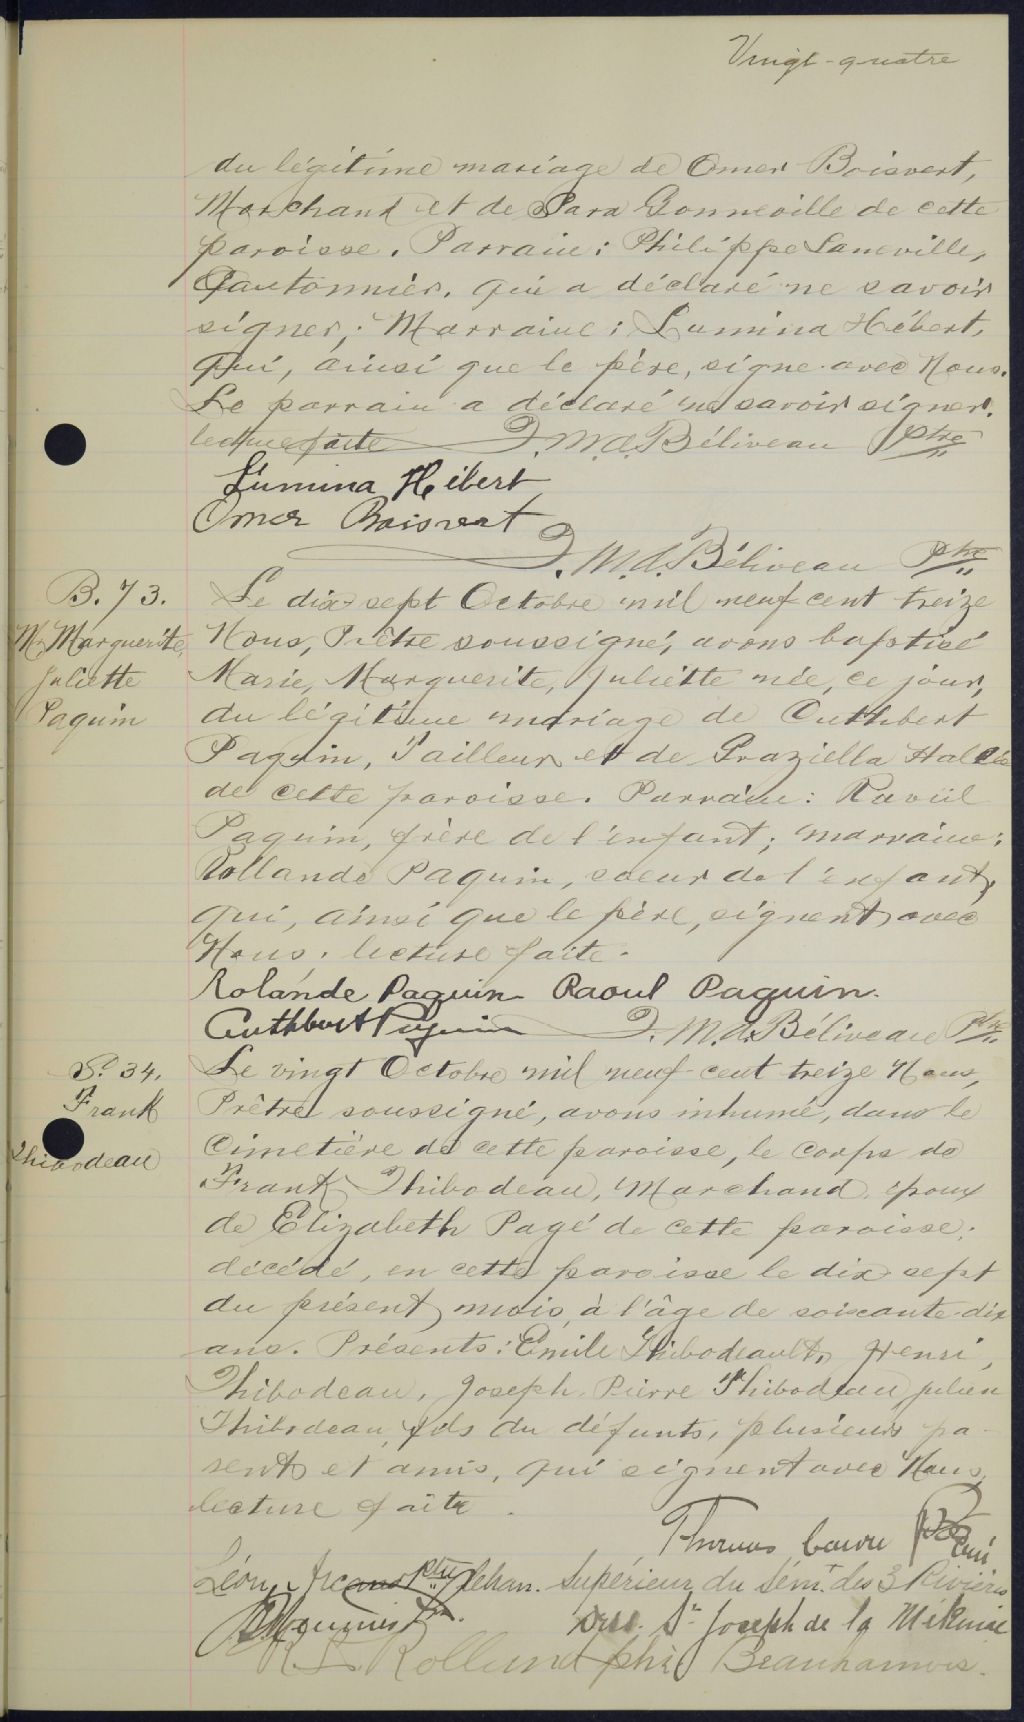 Vingt-quatre
du légitime mariage de Omer Boisvert,
Marchand et de Sara Gonneville de cette
paroisse. Parrain: Philippe Laneville,
Cantonnier, qui a déclaré ne savoir
signer; Marraine: Lumina Hébert,
qui, ainsi que le père, signe avec Nous.
Le parrain a déclaré ne savoir signer.
lecture faite J. M. d. Béliveau Ptre
Lumina Hébert
Omer Boisvert
J. M. d. Béliveau Ptre
B. 73.
M. Marguerite,
Juliette
Paquin
Le dix-sept Octobre mil neuf-cent treize
Nous, Prêtre soussigné, avons baptisé
Marie, Marguerite, Juliette née, ce jour,
du légitime mariage de Cuthbert
Paquin, Tailleur et de Graziella Hallée
de cette paroisse. Parrain: Raoül
Paquin, frère de l'enfant; marraine:
Rollande Paquin, soeur de l'enfant,
qui, ainsi que le père, signent avec
Nous. lecture faite.
Rolande Paquin Raoul Paquin.
Cuthbert Paquin J. M. d. Béliveau Ptre
S. 34.
Frank
Thibodeau
Le vingt Octobre mil neuf-cent treize Nous,
Prêtre soussigné, avons inhumé, dans le
cimetière de cette paroisse, le corps de
Frank Thibodeau, Marchand, époux
de Elizabeth Pagé de cette paroisse;
décédé, en cette paroisse le dix-sept
du présent mois, à l'âge de soixante-dix
ans. Présents: Emile Thibodeault, Henri,
Thibodeau, Joseph, Pierre Thibodeau, julien
Thibodeau, fils du défunts, plusieurs pa-
rents et amis, qui signent avec Nous,
lecture faite.
Thomas
Léon ptre Supérieur du Sém. des 3 Rivières
St Joseph de la
Rolland ptre Beauharnois.